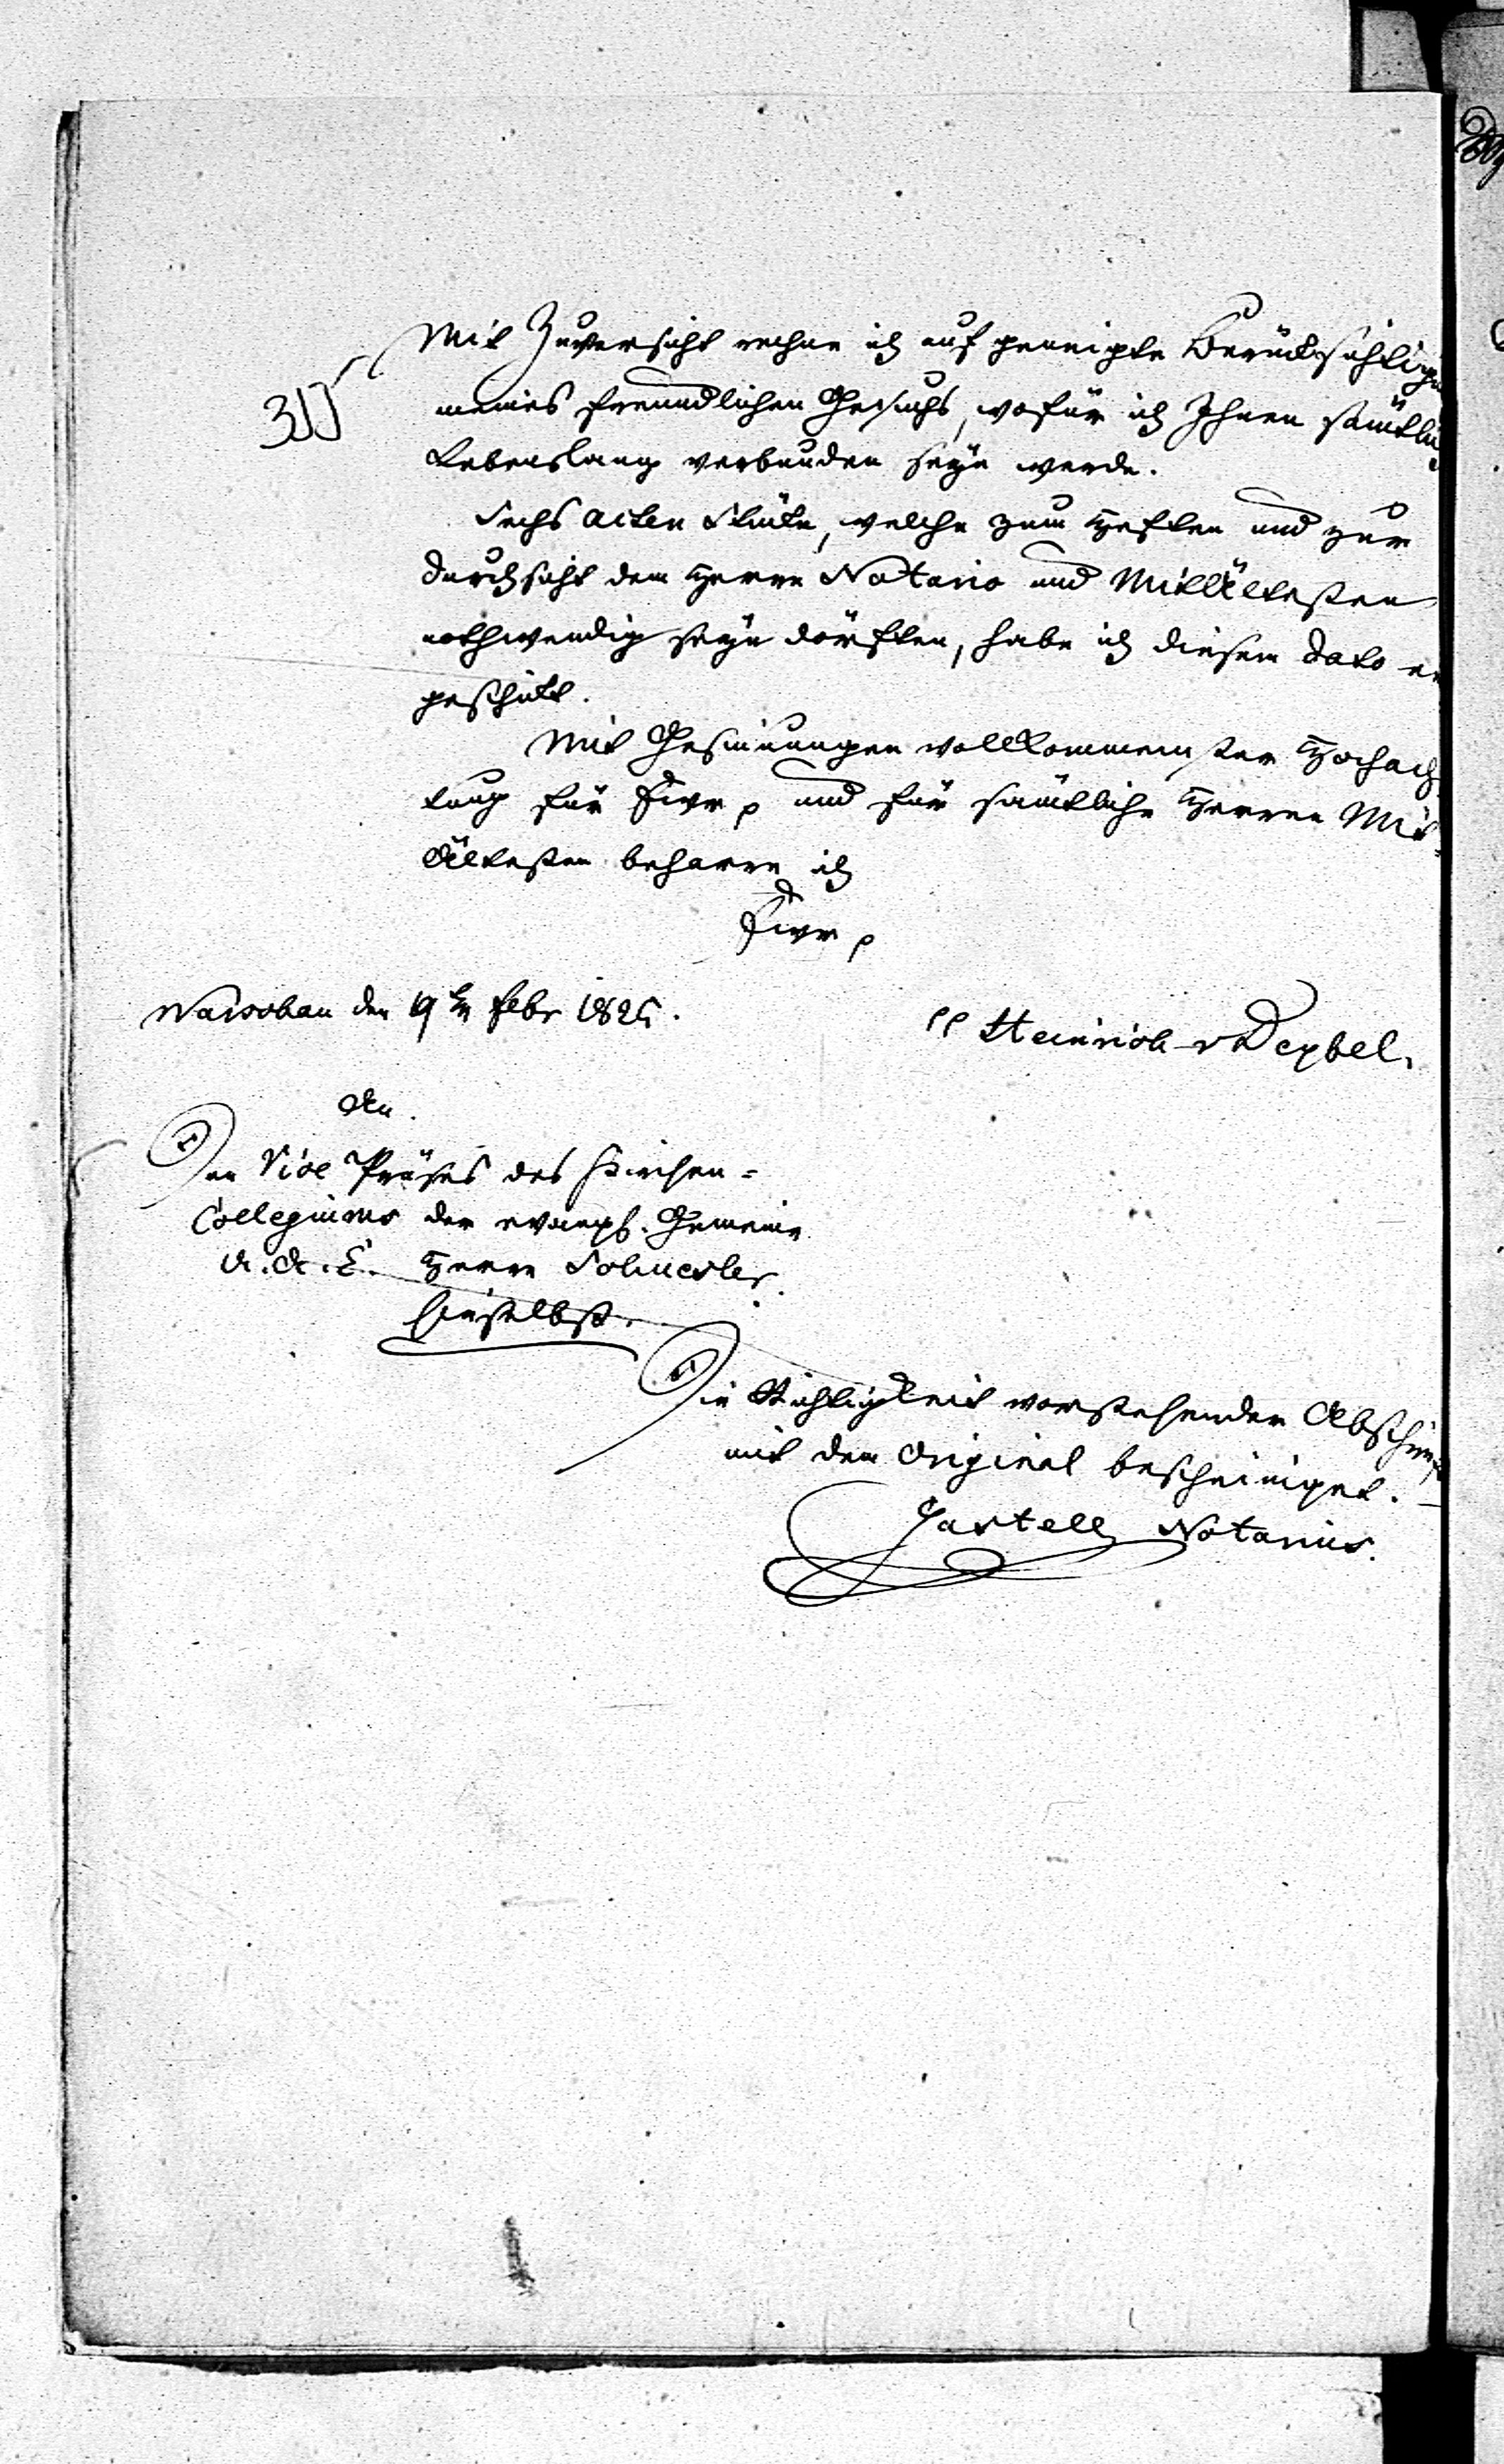 Mit Zuversicht rechne ich auf geneigte Berücksichtigu
meines freundlichen Gesuchs, wofür ich Ihnen sämtli
Lebenslang verbunden seyn werde.
Sechs Acten Stücke, welche zum Heften und zur
Durchsicht dem Herrn Notario und Mitältesten
nothwendig seyn dörften, habe ich diesem Dato
geschickt.
Mit Gesinnungen vollkommenster Hochach
tung für Ewr p und für sämtliche Herren Mit=
Ältesten beharre ich
Ewr p
Warschau den 9ten Febr 182
Heinrich v
An
Den Vice Präses des Kirchen=
Collegiums der evangl. Gemeine
A. A. C. Herrn
hieselbst.
Die Richtigkeit vorstehender Abschrift
mit dem Original bescheiniget.
Notarius.